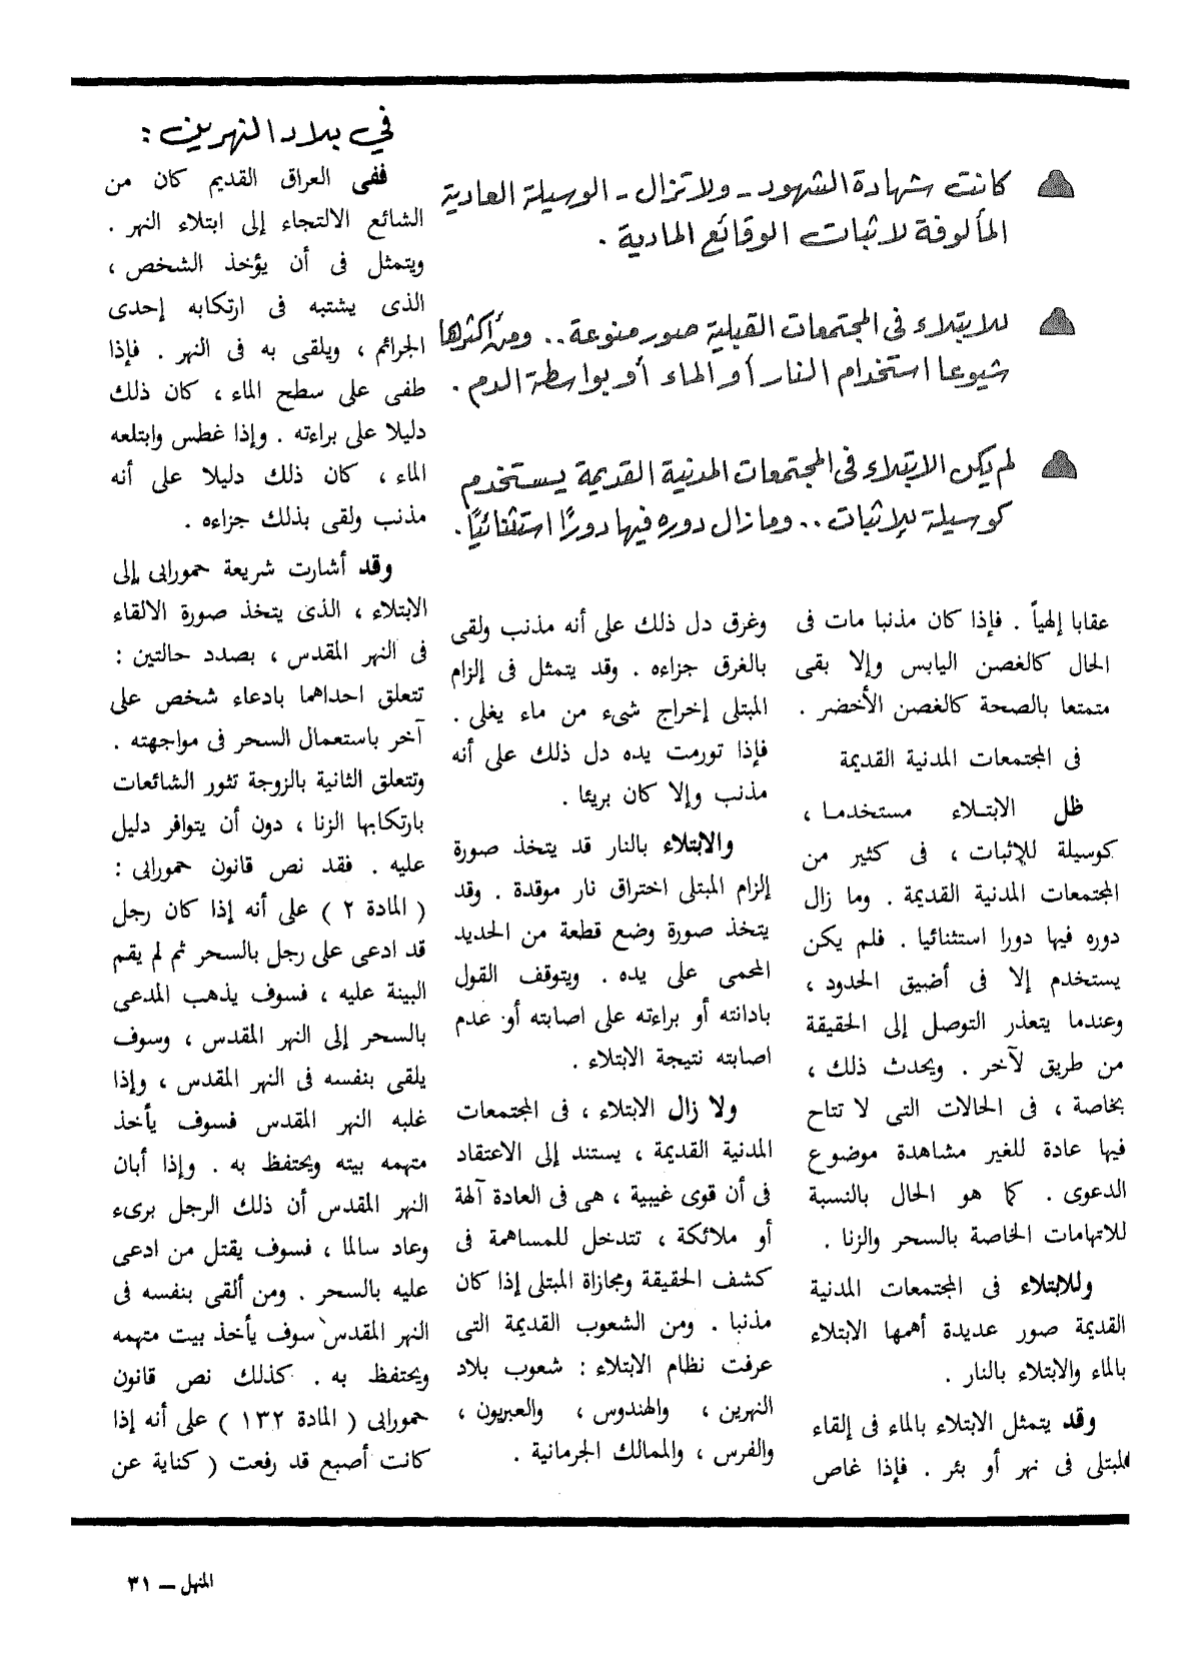 كانت شهادة الشهود - ولا تزال - الوسيلة العادية
المألوفة لاثبات الوقائع المادية .
للابتلاء فى المجتمعات القبلية صور منوعة .. ومن أكثرها
شيوعا استخدام النار أو الماء أو بواسطة الدم .
لم يكن الابتلاء فى المجتمعات المدنية القديمة يستخدم
كوسيلة للإثبات .. وما زال دوره فيها دورًا استثنائيًا .
عقابا إلهياً . فإذا كان مذنبا مات فى
الحال كالغصن اليابس وإلا بقى
متمتعا بالصحة كالغصن الأخضر .
فى المجتمعات المدنية القديمة
ظل الابتلاء مستخدما ،
كوسيلة للإثبات ، فى كثير من
المجتمعات المدنية القديمة . وما زال
دوره فيها دورا استثنائيا . فلم يكن
يستخدم إلا فى أضيق الحدود ،
وعندما يتعذر التوصل إلى الحقيقة
من طريق لآخر . ويحدث ذلك ،
بخاصة ، فى الحالات التى لا تتاح
فيها عادة للغير مشاهدة موضوع
الدعوى . كما هو الحال بالنسبة
للاتهامات الخاصة بالسحر والزنا .
وللابتلاء فى المجتمعات المدنية
القديمة صور عديدة أهمها الابتلاء
بالماء والابتلاء بالنار .
وقد يتمثل الابتلاء بالماء فى إلقاء
المبتلى فى نهر أو بئر . فإذا غاص
وغرق دل ذلك على أنه مذنب ولقى
بالغرق جزاءه . وقد يتمثل فى إلزام
المبتلى إخراج شىء من ماء يغلى .
فإذا تورمت يده دل ذلك على أنه
مذنب وإلا كان بريئا .
والابتلاء بالنار قد يتخذ صورة
إلزام المبتلى اختراق نار موقدة . وقد
يتخذ صورة وضع قطعة من الحديد
المحمى على يده . ويتوقف القول
بادانته أو براءته على اصابته أو عدم
اصابته نتيجة الابتلاء .
ولا زال الابتلاء ، فى المجتمعات
المدنية القديمة ، يستند إلى الاعتقاد
فى أن قوى غيبية ، هى فى العادة آلهة
أو ملائكة ، تتدخل للمساهمة فى
كشف الحقيقة ومجازاة المبتلى إذا كان
مذنبا . ومن الشعوب القديمة التى
عرفت نظام الابتلاء : شعوب بلاد
النهرين ، والهندوس ، والعبريون ،
والفرس ، والممالك الجرمانية .
في بلاد النهرين :
ففى العراق القديم كان من
الشائع الالتجاء إلى ابتلاء النهر .
ويتمثل فى أن يؤخذ الشخص ،
الذى يشتبه فى ارتكابه إحدى
الجرائم ، ويلقى به فى النهر . فإذا
طفى على سطح الماء ، كان ذلك
دليلا على براءته . وإذا غطس وابتلعه
الماء ، كان ذلك دليلا على أنه
مذنب ولقى بذلك جزاءه .
وقد أشارت شريعة حمورابى إلى
الابتلاء ، الذى يتخذ صورة الالقاء
فى النهر المقدس ، بصدد حالتين :
تتعلق احداهما بادعاء شخص على
آخر باستعمال السحر فى مواجهته .
وتتعلق الثانية بالزوجة تثور الشائعات
بارتكابها الزنا ، دون أن يتوافر دليل
عليه . فقد نص قانون حمورابى :
( المادة ٢ ) على أنه إذا كان رجل
قد ادعى على رجل بالسحر ثم لم يقم
البينة عليه ، فسوف يذهب المدعى
بالسحر إلى النهر المقدس ، وسوف
يلقى بنفسه فى النهر المقدس ، وإذا
غلبه النهر المقدس فسوف يأخذ
متهمه بيته ويحتفظ به . وإذا أبان
النهر المقدس أن ذلك الرجل برىء
وعاد سالما ، فسوف يقتل من ادعى
عليه بالسحر . ومن ألقى بنفسه فى
النهر المقدس سوف يأخذ بيت متهمه
ويحتفظ به . كذلك نص قانون
حمورابى ( المادة ١٣٢ ) على أنه إذا
كانت أصبع قد رفعت ( كناية عن
المنهل — ٣١